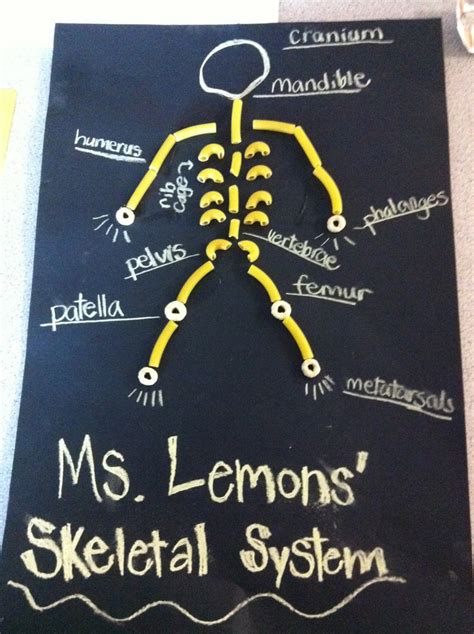 Cranium
mandible
humerus
rib
cage
phalanges
vertebrae
pelvis
femur
patella
metatarsals
Ms. Lemons'
Skeletal System